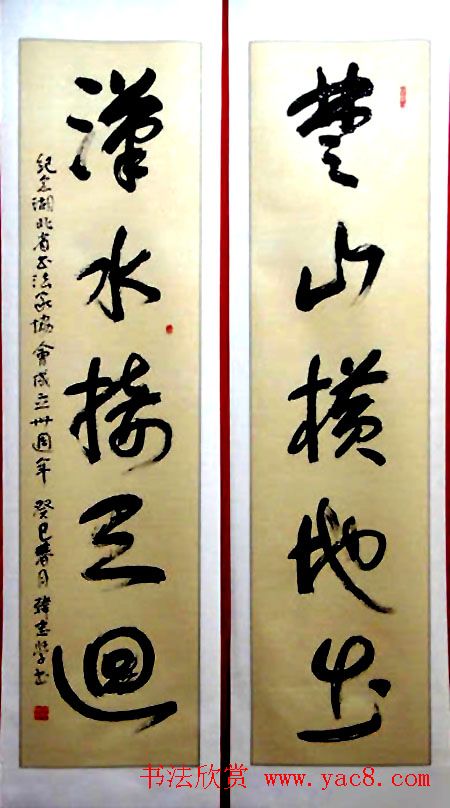 楚山横地出
漢水接天迴
纪念湖北省书法家協會成立卅周年 癸巳春月
书法欣赏 www.yac8.com